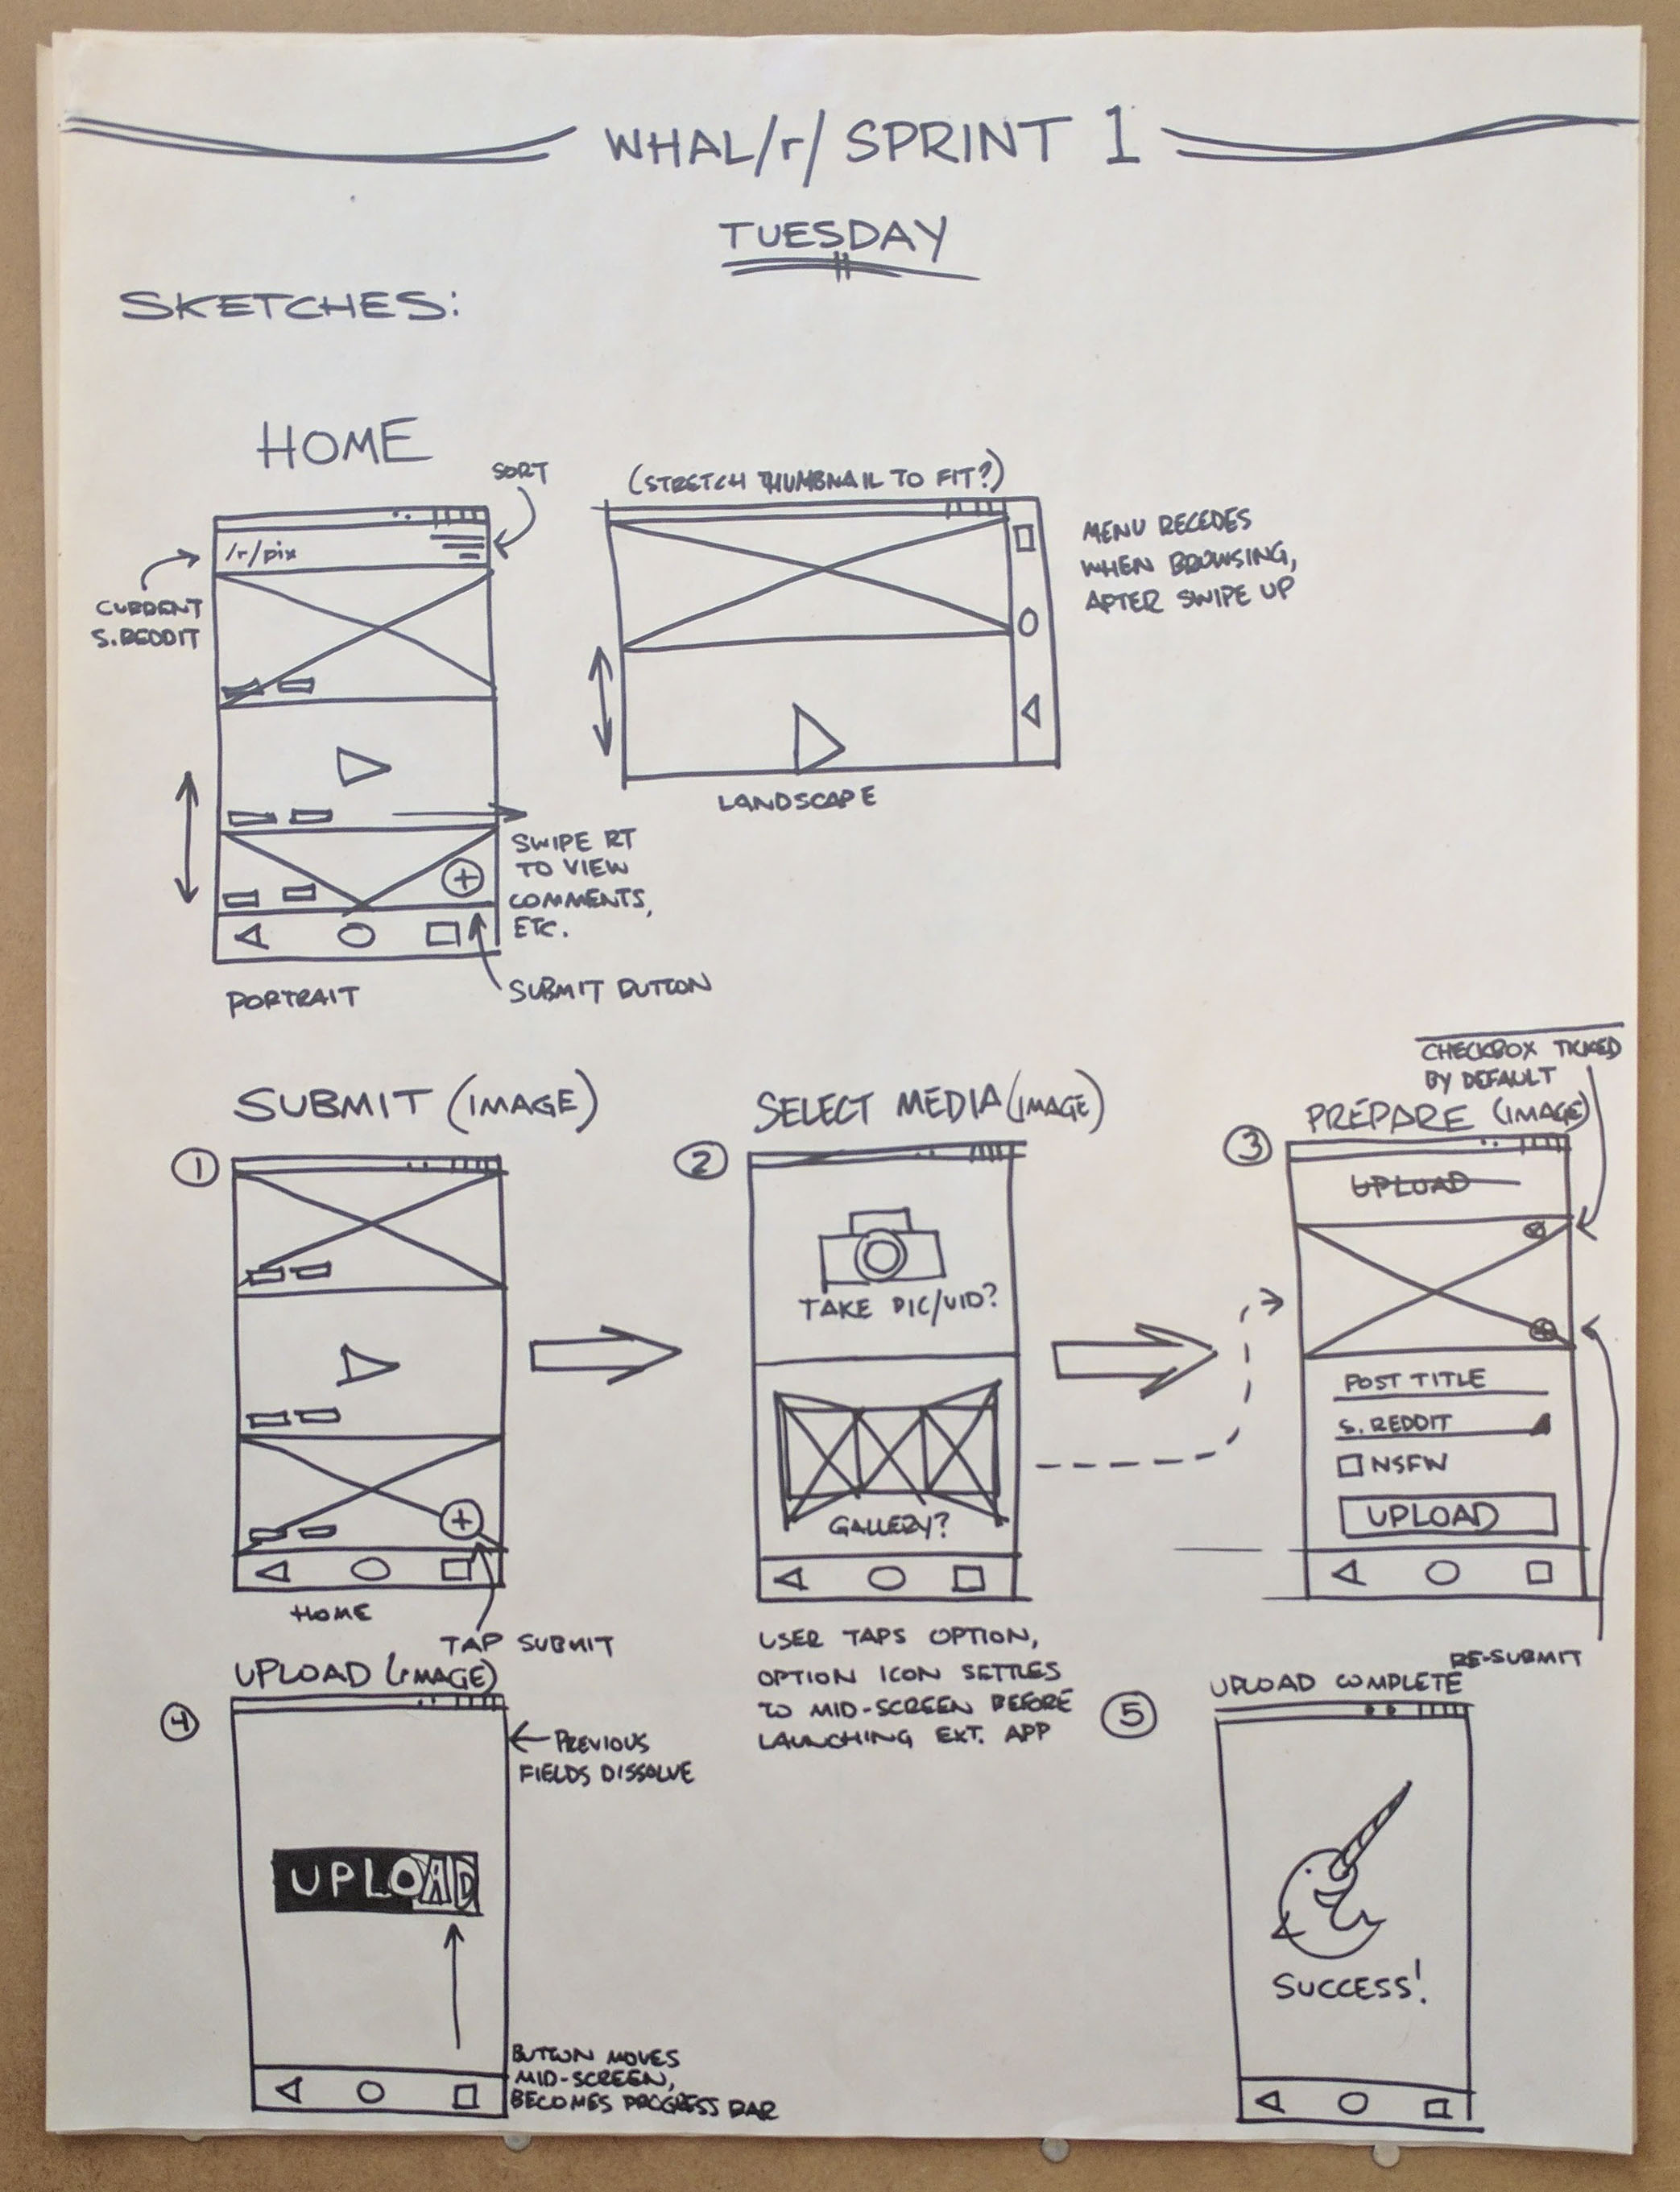 WHAL/r/ SPRINT 1
TUESDAY
SKETCHES:
HOME
SORT
/r/pix
CURRENT
S.REDDIT
SWIPE RT
TO VIEW
COMMENTS,
ETC.
SUBMIT BUTTON
PORTRAIT
(STRETCH THUMBNAIL TO FIT?)
MENU RECEDES
WHEN BROWSING,
AFTER SWIPE UP
LANDSCAPE
SUBMIT (IMAGE)
1
HOME
TAP SUBMIT
SELECT MEDIA (IMAGE)
2
TAKE PIC/VID?
GALLERY?
USER TAPS OPTION,
OPTION ICON SETTLES
TO MID-SCREEN BEFORE
LAUNCHING EXT. APP
CHECKBOX TICKED
BY DEFAULT
PREPARE (IMAGE)
3
UPLOAD
POST TITLE
S. REDDIT
NSFW
UPLOAD
RE-SUBMIT
UPLOAD (IMAGE)
4
PREVIOUS
FIELDS DISSOLVE
UPLOAD
BUTTON MOVES
MID-SCREEN,
BECOMES PROGRESS BAR
UPLOAD COMPLETE
5
SUCCESS!